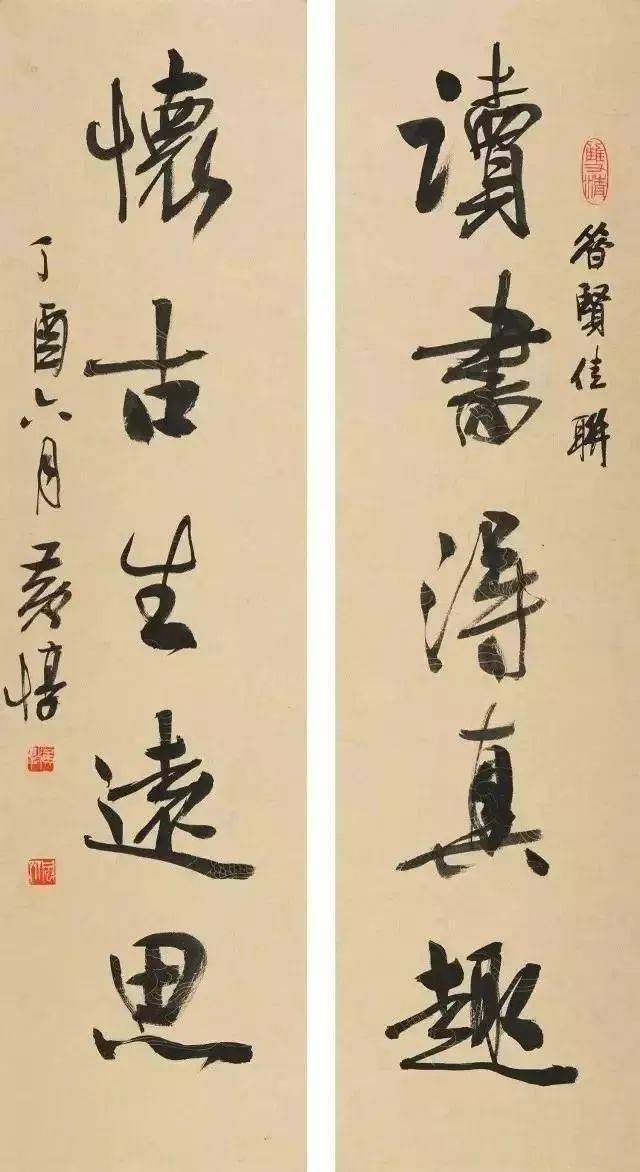 昔賢佳聯
讀書得真趣
懷古生遠思
丁酉六月黃惇